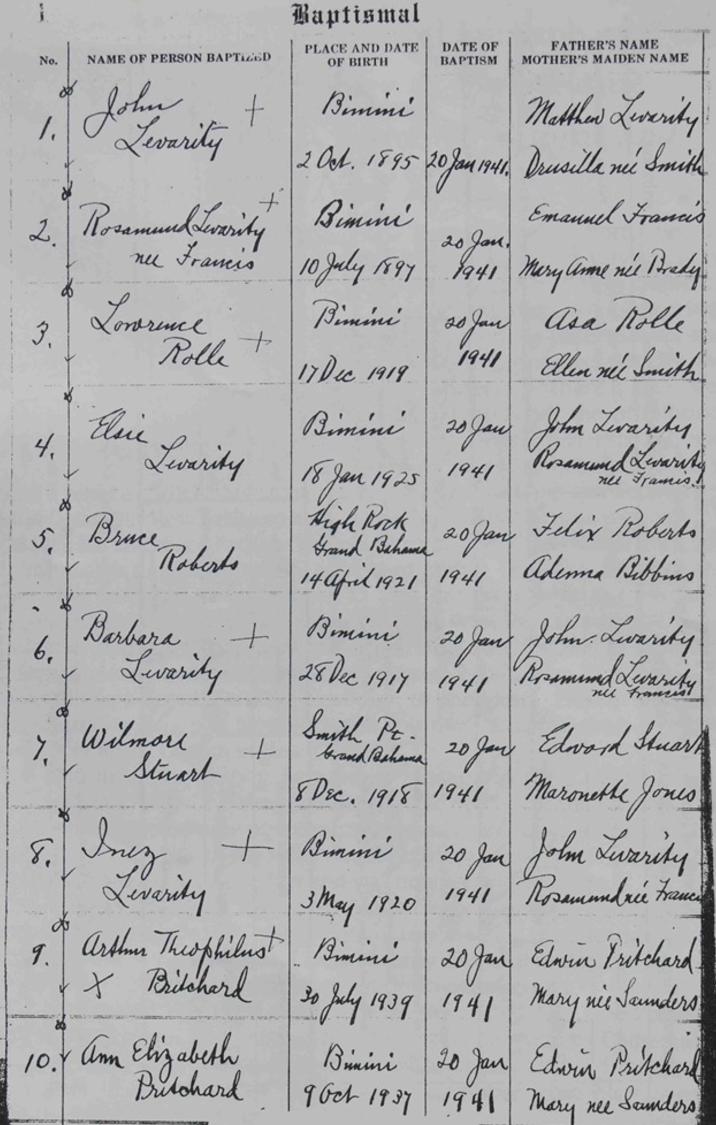 1
Baptismal
No. NAME OF PERSON BAPTIZED PLACE AND DATE OF BIRTH DATE OF BAPTISM FATHER'S NAME MOTHER'S MAIDEN NAME
1. John + Bimini Matthew Levarity
Levarity 2 Oct. 1895 20 Jan 1941. Drusilla neé Smith
2. Rosamund Levarity + Bimini 20 Jan. Emanuel Francis
nee Francis 10 July 1897 1941 Mary Anne neé Brady
3. Lowrence + Bimini 20 Jan Asa Rolle
Rolle 17 Dec 1919 1941 Ellen neé Smith
4. Elsie Bimini 20 Jan John Levarity
Levarity 18 Jan 1925 1941 Rosamund Levarity
neé Francis
5. Bruce High Rock 20 Jan Felix Roberts
Grand Bahama
Roberts 14 April 1921 1941 Adenna Bibbins
6. Barbara + Bimini 20 Jan John Levarity
Levarity 28 Dec 1917 1941 Rosamund Levarity
neé Francis
7. Wilmore + Smith Pt. 20 Jan Edward Stuart
Grand Bahama
Stuart 8 Dec. 1918 1941 Maronette Jones
8. Inez + Bimini 20 Jan John Levarity
Levarity 3 May 1920 1941 Rosamund neé Francis
9. Arthur Theophilus + Bimini 20 Jan Edwin Pritchard
X Pritchard 30 July 1939 1941 Mary neé Saunders
10. Ann Elizabeth Bimini 20 Jan Edwin Pritchard
Pritchard 9 Oct 1937 1941 Mary nee Saunders